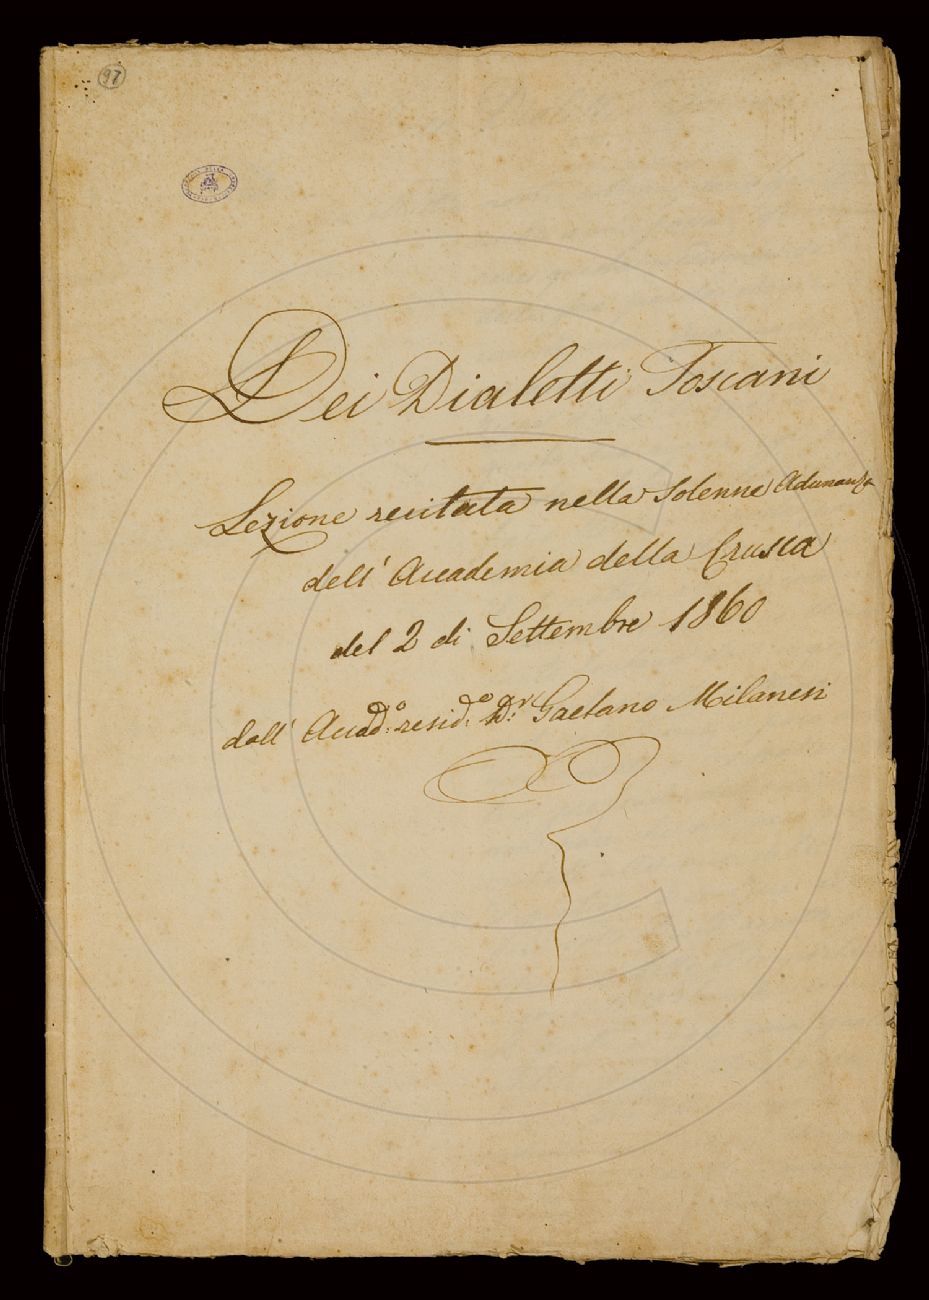 97
Dei Dialetti Toscani
Lezione recitata nella Solenne Adunanza
dell' Accademia della Crusca
del 2 di Settembre 1860
dall' Accad:º resid:º D:r Gaetano Milanesi